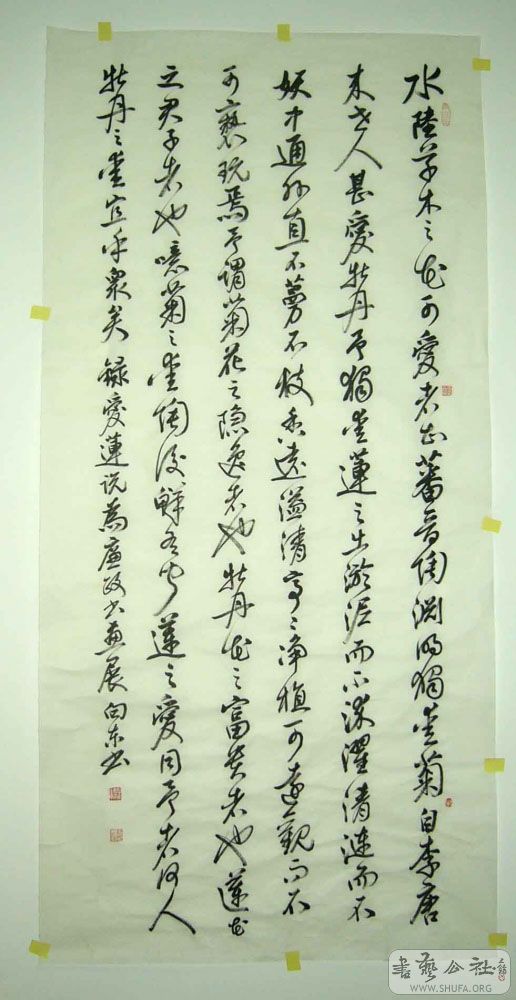 水陸草木之花可愛者甚蕃晋陶渊明獨爱菊自李唐
来世人甚愛牡丹予獨爱蓮之出淤泥而不染濯清漣而不
妖中通外直不蔓不枝香遠溢清亭々净植可遠觀而不
可褻玩焉予謂菊花之隐逸者也牡丹花之富贵者也蓮花
之君子者也噫菊之爱陶後鲜有闻蓮之愛同予者何人
牡丹之爱宜乎衆矣 録愛蓮説為廉政书画展 向东书
書藝公社
WWW.SHUFA.ORG